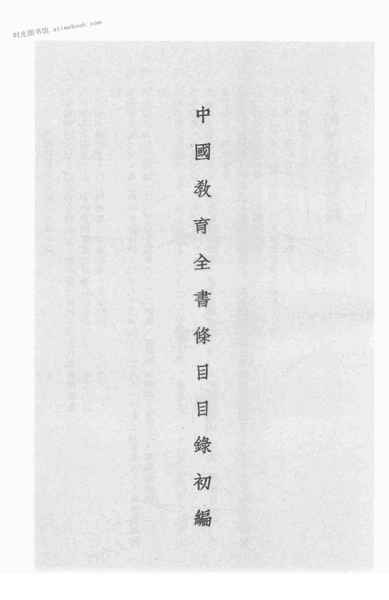 时光图书馆 atimebook.com
中國教育全書條目目錄初編